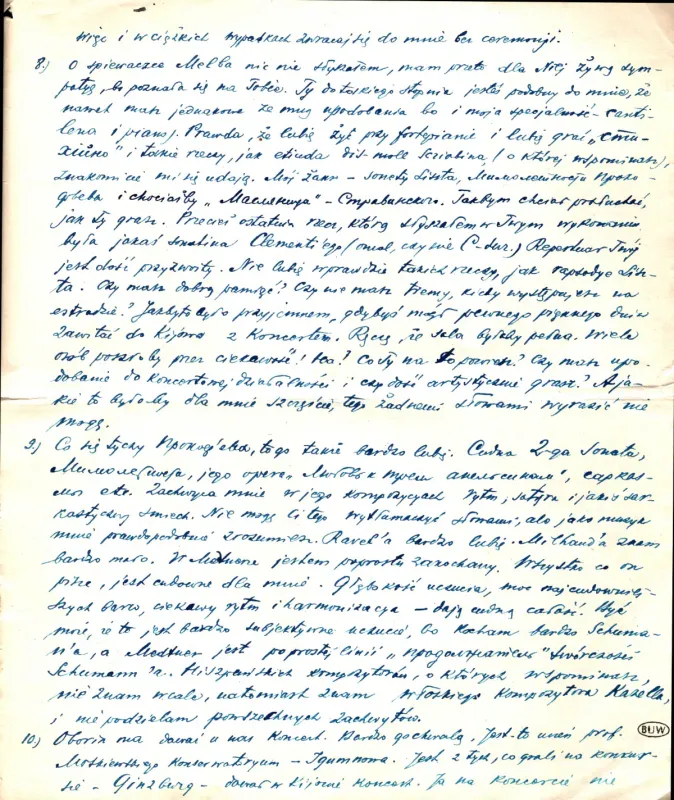 więc i w ciężkich wypadkach zwracaj się do mnie bez ceremonji.
8.) O śpiewaczce Melba nic nie słyszałem, mam przeto dla Niej żywą sym-
patję, bo poznała się na Tobie. Ty do takiego stopnia jesteś podobny do mnie, że
nawet masz jednakowe ze mną upodobania bo i moja specjalność - canti-
lena i piano. Prawda, że lubię żyć przy fortepianie i lubię grać „стu-
хiйно" i takie rzeczy, jak etiuda dis-moll Scriabina, (o której wspominasz),
znakomicie mi się udają. Mój żanr - Sonaty Liszta, Мимолетности Проко-
фьева i chociażby „Масляница" - Стравинского. Takbym chciał posłuchać,
jak Ty grasz. Przecież ostatnia rzecz, którą słyszałem w Twym wykonaniu
była jakaś Sonatina Clementi'ego (moll, czy nie C-dur.) Repertuar Twój
jest dość przyzwoity. Nie lubię wprawdzie takich rzeczy, jak rapsodye Lisz-
ta. Czy masz dobrą pamięć? Czy nie masz tremy, kiedy występujesz na
estradzie? Jakby to było przyjemnem, gdybyś mógł pewnego pięknego dnia
zawitać do Kijowa z Koncertem. Ręczę, że sala byłaby pełna. Wiele
osób poszłoby przez ciekawość! Co? Co Ty na to powiesz? Czy masz upo-
dobanie do koncertowej działalności i czy dość artystycznie grasz? A ja-
kie to byłoby dla mnie szczęście, tego żadnemi słowami wyrazić nie
mogę.
9.) Co się tyczy Прокофьева, to go także bardzo lubię. Cudna 2-ga Sonata,
Мимолетности, jego opera „Любовь к трем апельсинам", сарказ-
мы etc. Zachwyca mnie w jego kompozycjach rytm, satyra i jakiś sar-
kastyczny śmiech. Nie mogę Ci tego wytłumaczyć słowami, ale jako muzyk
mnie prawdopodobnie zrozumiesz. Ravel'a bardzo lubię. Milhaud'a znam
bardzo mało. W Medtnera jestem poprostu zakochany. Wszystko co on
pisze, jest cudowne dla mnie. Głębokość uczucia, moc najcudowniej-
szych barw, ciekawy rytm i harmonizacja - dają cudną całość. Być
może, że to jest bardzo subjektywne uczucie, bo kocham bardzo Schuma-
n'a, a Medtner jest poprostej linii „продолжателем" twórczości
Schumann'a. Hiszpańskich kompozytorów, o których wspominasz,
nie znam wcale, natomiast znam włoskiego kompozytora Kazella,
i nie podzielam powszechnych zachwytów.
10.) Oborin ma dawać u nas koncert. Bardzo go chwalą. Jest to uczeń prof.
Moskiewskiego Konserwatoryum - Igumnowa. Jest z tych, co grali na konkur-
sie - Ginzburg - dawał w Kijowie koncert. Ja na koncercie nie
BUW